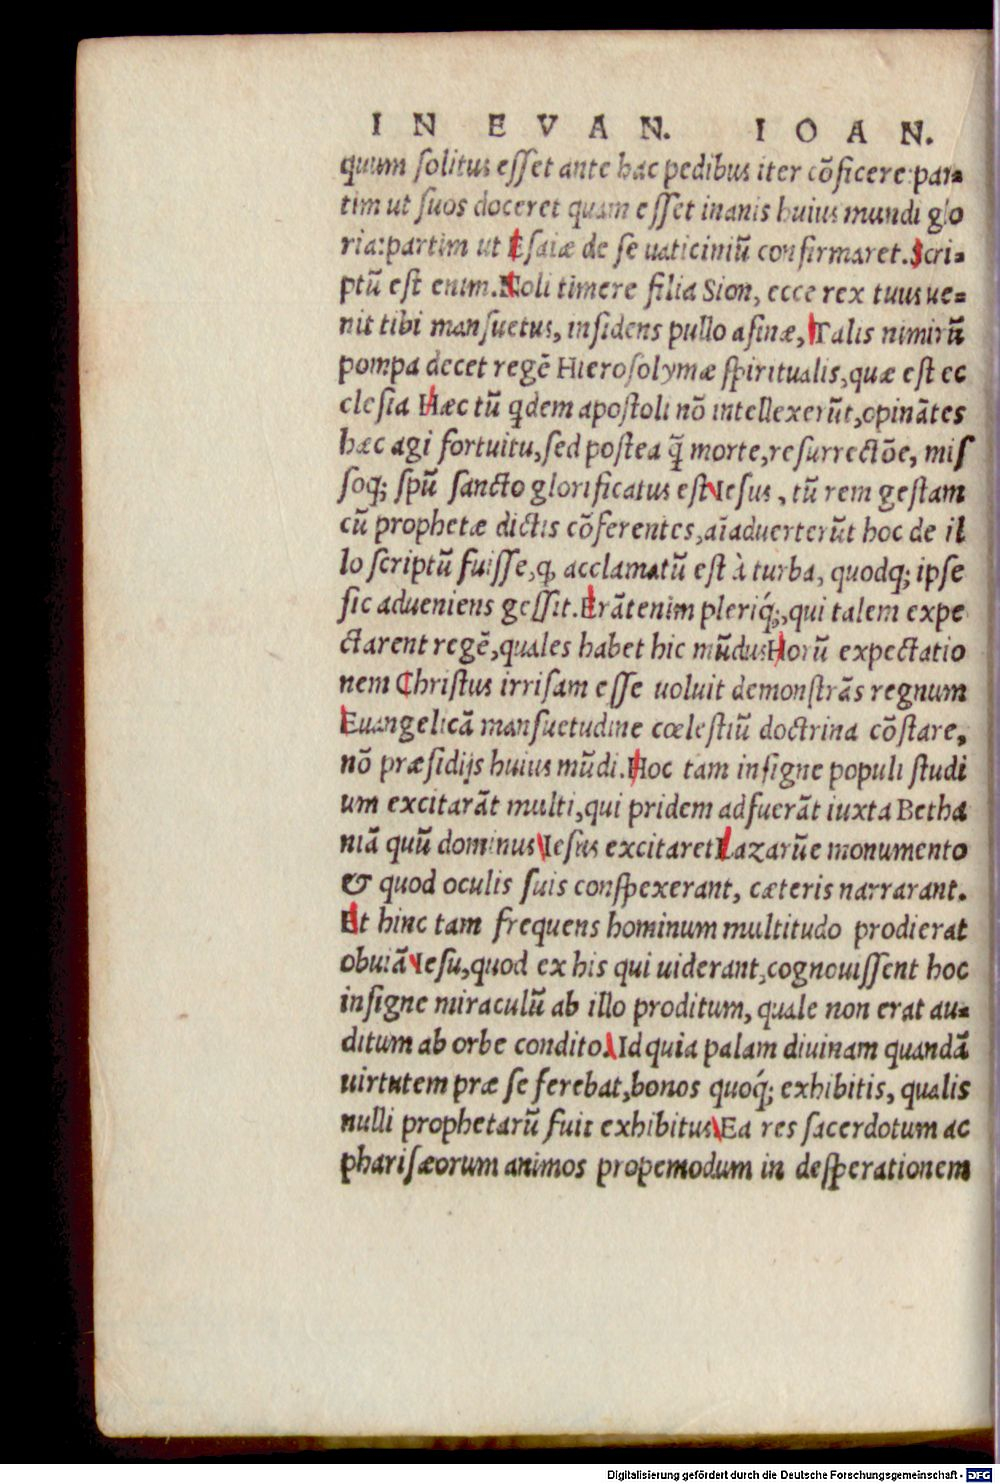 IN EVAN. IOAN.
quum solitus esset ante hac pedibus iter cõficere: par-
tim ut suos doceret quam esset inanis huius mundi glo
ria: partim ut Esaiæ de se uaticiniũ confirmaret. Scri-
ptũ est enim. Noli timere filia Sion, ecce rex tuus ue-
nit tibi mansuetus, insidens pullo asinæ, Talis nimirũ
pompa decet regẽ Hierosolymæ spiritualis, quæ est ec
clesia Hæc tũ qdem apostoli nõ intellexerũt, opinãtes
hæc agi fortuitu, sed postea q̃ morte, resurrectõe, mis
soq; spũ sancto glorificatus est Iesus, tũ rem gestam
cũ prophetæ dictis cõferentes, aĩaduerterũt hoc de il
lo scriptũ fuisse, q, acclamatũ est à turba, quodq; ipse
sic adueniens gessit. Erãt enim pleriq́;, qui talem expe
ctarent regẽ, quales habet hic mũdus Horũ expectatio
nem Christus irrisam esse uoluit demonstrãs regnum
Euangelicã mansuetudine cœlestiũ doctrina cõstare,
nõ præsidijs huius mũdi. Hoc tam insigne populi studi
um excitarãt multi, qui pridem adfuerãt iuxta Betha
niã quũ dominus Iesus excitaret Lazarũ e monumento
& quod oculis suis conspexerant, cæteris narrarant.
Et hinc tam frequens hominum multitudo prodierat
obuiã Iesu, quod ex his qui uiderant, cognouissent hoc
insigne miraculũ ab illo proditum, quale non erat au-
ditum ab orbe condito. Id quia palam diuinam quandã
uirtutem præ se ferebat, bonos quoq́; exhibitis, qualis
nulli prophetarũ fuit exhibitus Ea res sacerdotum ac
pharisæorum animos propemodum in desperationem
Digitalisierung gefördert durch die Deutsche Forschungsgemeinschaft - DFG